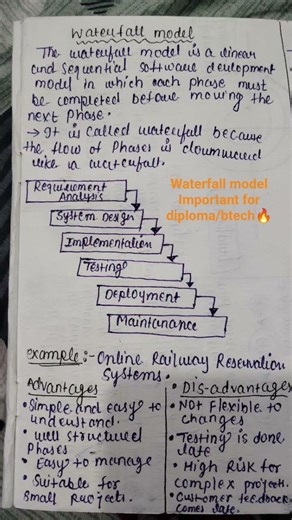 Waterfall model
The waterfall model is a linear
and sequential software development
model in which each phase must
be completed before moving the
next phase.
→ It is called waterfall because
the flow of phases is downward
like a waterfall.
Requirement
Analysis
Waterfall model
Important for
diploma/btech🔥
System Design
Implementation
Testing
Deployment
Maintenance
Example:- Online Railway Reservation
Systems.
Advantages
• Simple and easy to
understand.
• Well structured
Phases
• Easy to manage
• Suitable for
Small Projects.
• Dis-advantages
• Not Flexible to
changes
• Testing is done
late
• High Risk for
complex projects.
• Customer feedback
comes late.